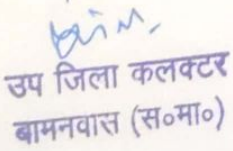 उप जिला कलक्टर
बामनवास (स०मा०)